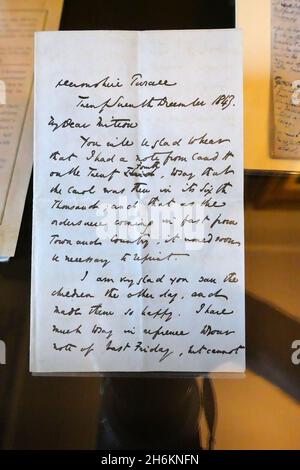 Devonshire Terrace
Twenty Seventh December 1843.
My Dear Mitton
You will be glad to hear
that I had a note from C and H
on the Twenty Fourth, to say that
the Carol was then in its sixth
thousand; and that as the
orders were coming in fast from
Town and Country, it would soon
be necessary to reprint.
I am very glad you saw the
children the other day, and
made them so happy. I have
much to say in reference to your
note of Last Friday, but cannot
alamy
Image ID: 2H6KNFN
www.alamy.com